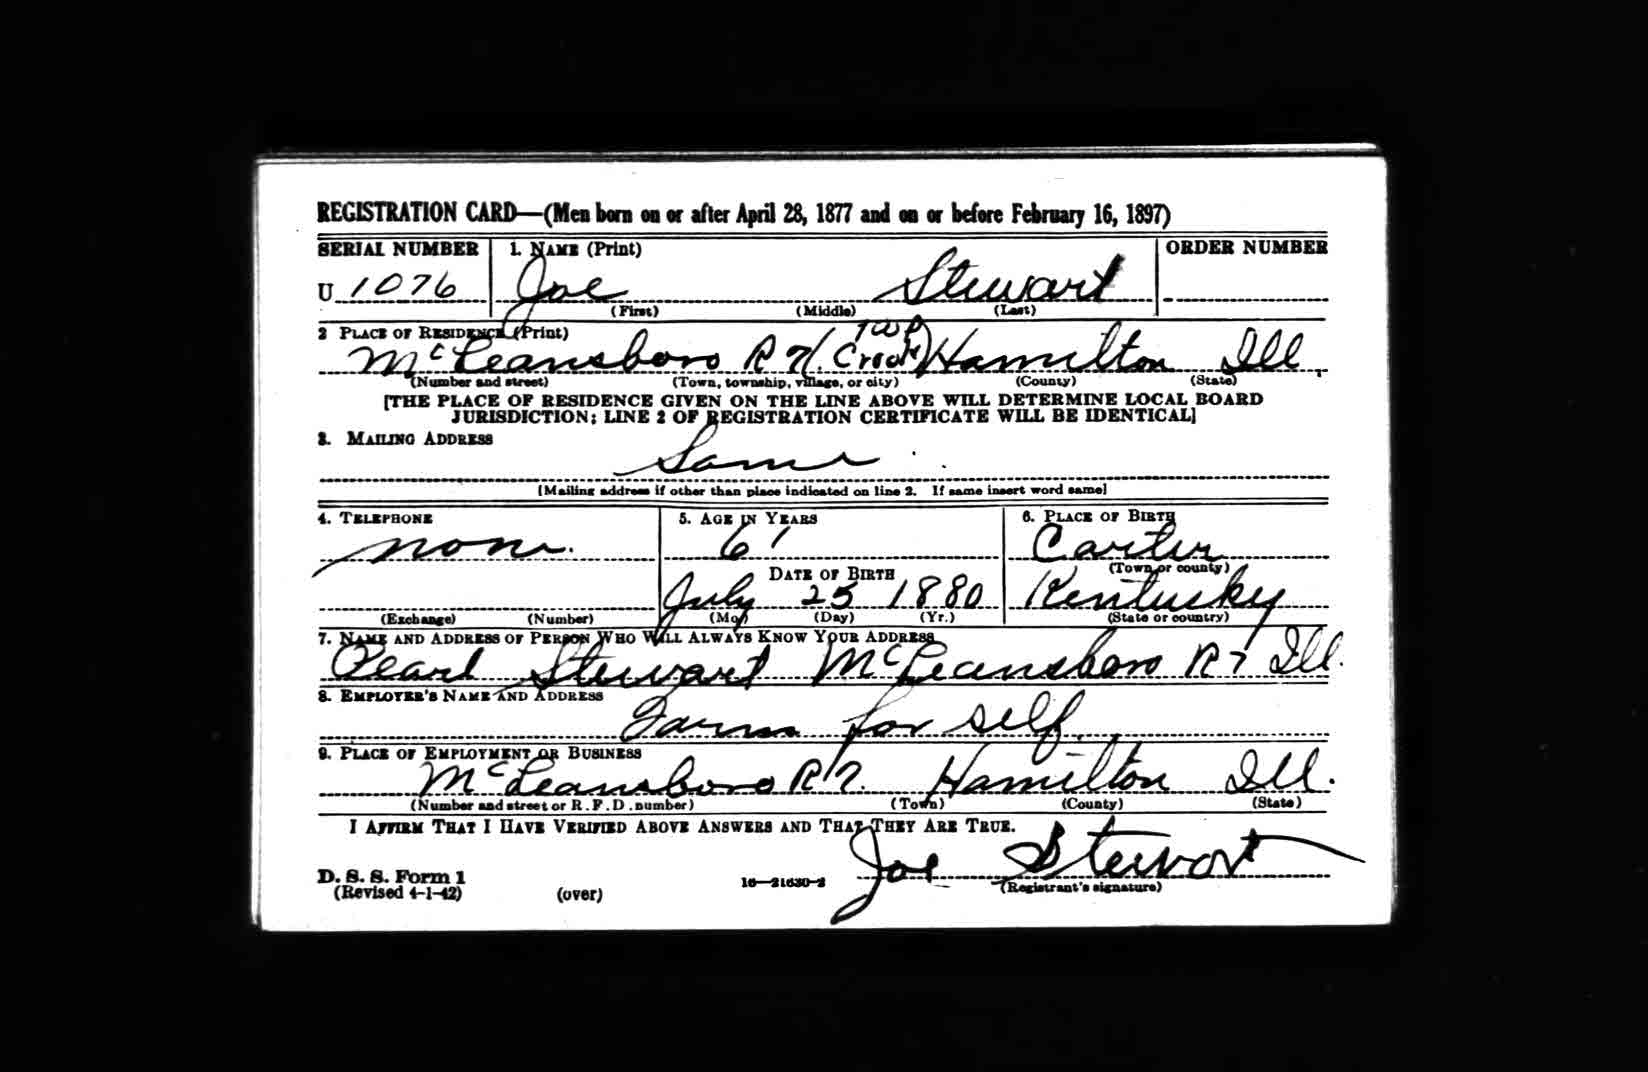 REGISTRATION CARD—(Men born on or after April 28, 1877 and on or before February 16, 1897)
SERIAL NUMBER 1. NAME (Print) ORDER NUMBER
U 1076 Joe Stewart
(First) (Middle) (Last)
2 PLACE OF RESIDENCE (Print)
McLeansboro R 7 (Crook Twp) Hamilton Ill
(Number and street) (Town, township, village, or city) (County) (State)
[THE PLACE OF RESIDENCE GIVEN ON THE LINE ABOVE WILL DETERMINE LOCAL BOARD
JURISDICTION; LINE 2 OF REGISTRATION CERTIFICATE WILL BE IDENTICAL]
3. MAILING ADDRESS
Same
[Mailing address if other than place indicated on line 2. If same insert word same]
4. TELEPHONE 5. AGE IN YEARS 6. PLACE OF BIRTH
none. 61 Carter
(Town or county)
DATE OF BIRTH
July 25 1880 Kentusky
(Exchange) (Number) (Mo.) (Day) (Yr.) (State or country)
7. NAME AND ADDRESS OF PERSON WHO WILL ALWAYS KNOW YOUR ADDRESS
Pearl Stewart McLeansboro R 7 Ill.
8. EMPLOYER'S NAME AND ADDRESS
Farm for self.
9. PLACE OF EMPLOYMENT OR BUSINESS
McLeansboro R 7. Hamilton Ill.
(Number and street or R. F. D. number) (Town) (County) (State)
I AFFIRM THAT I HAVE VERIFIED ABOVE ANSWERS AND THAT THEY ARE TRUE.
Joe Stewart
D. S. S. Form 1
(Revised 4-1-42) (over) 16—21630-2 (Registrant's signature)